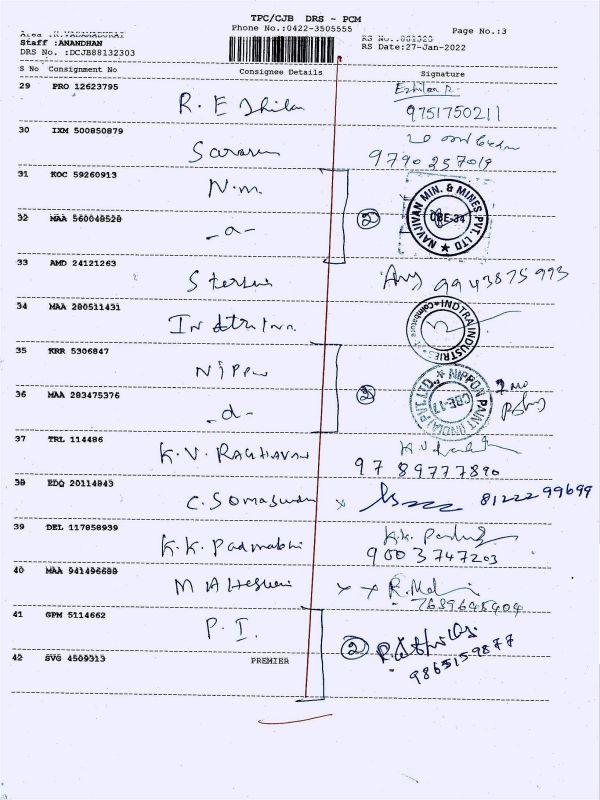 TPC/CJB DRS - PCM
Phone No.:0422-3505555
Page No.:3
Area :K.VADAMADURAI
RS No.:881323
Staff :ANANDHAN
RS Date:27-Jan-2022
DRS No. :DCJB88132303
S No Consignment No Consignee Details Signature
29 PRO 12623795 R. E Zhilan Ezhilan R.
9751750211
30 IXM 500850879
Saravan 9790257019
31 KOC 59260913 N.m.
NAVJIVAN MIN. & MINES PVT. LTD ★ CBE-34
32 MAA 560048528 -a- 2
33 AMD 24121263
9943875993
34 MAA 280511431
INDTRA INDUSTRIES ★ Coimbatore ★
35 KRR 5306847 Nippon
★ NIPPON PAINT (INDIA) PVT.LTD. CBE-17
36 MAA 283475376 -d- 2
37 TRL 114486
K. V. RAGHAVAN 9789777890
38 EDQ 20114843
C. Somasundm x 81222 99699
39 DEL 117858939
K.K. Padmabhi 9003747203
40 MAA 941496688
x x 7639645404
41 GPM 5114662 P. I.
2
42 SVG 4509313 PREMIER 9865159877